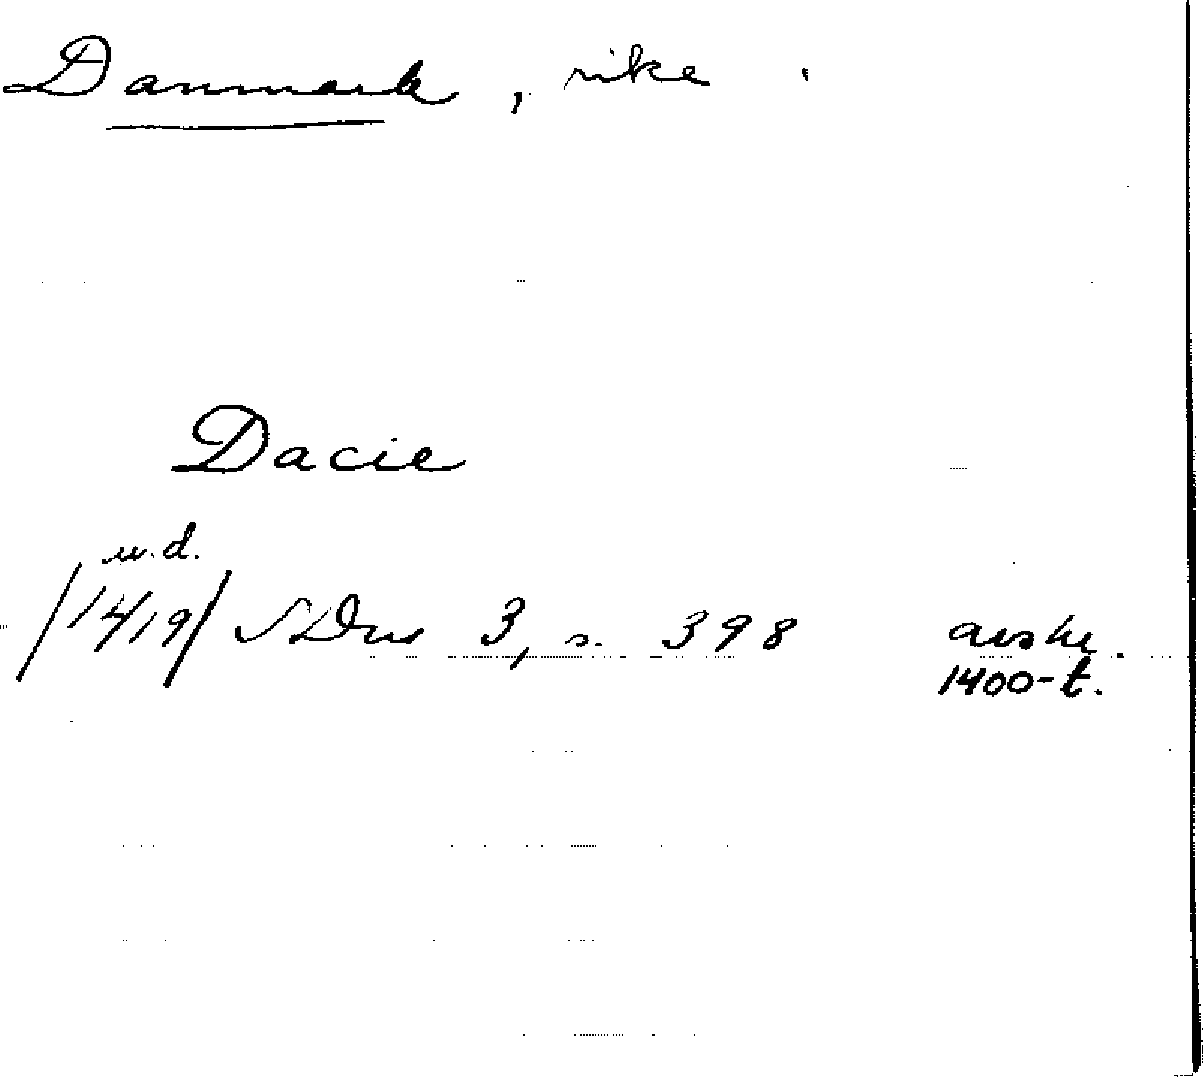 Danmark, rike.
Dacie
u.d.
/1419/ SDns 3, s. 398 avskr.
1400-t.